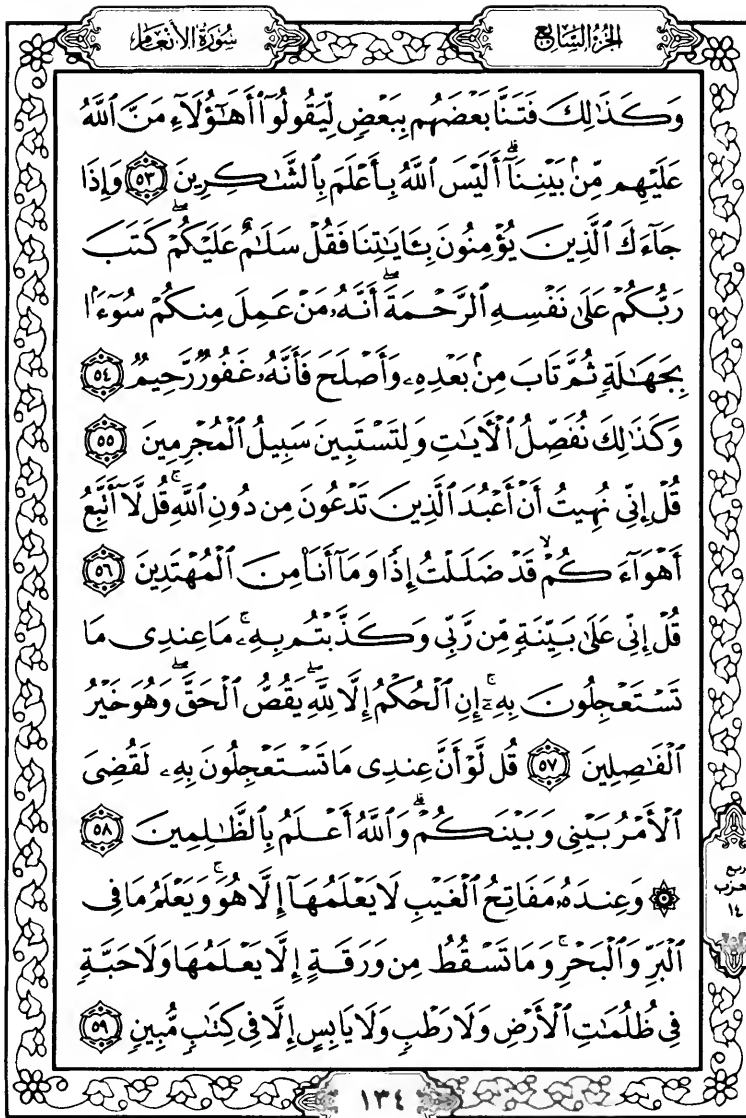 الجزء السابع
سورة الأنعام
وَكَذَٰلِكَ فَتَنَّا بَعْضَهُم بِبَعْضٍ لِّيَقُولُوٓا۟ أَهَٰٓؤُلَآءِ مَنَّ ٱللَّهُ
عَلَيْهِم مِّنۢ بَيْنِنَآ ۗ أَلَيْسَ ٱللَّهُ بِأَعْلَمَ بِٱلشَّٰكِرِينَ ٥٣ وَإِذَا
جَآءَكَ ٱلَّذِينَ يُؤْمِنُونَ بِـَٔايَٰتِنَا فَقُلْ سَلَٰمٌ عَلَيْكُمْ ۖ كَتَبَ
رَبُّكُمْ عَلَىٰ نَفْسِهِ ٱلرَّحْمَةَ ۖ أَنَّهُۥ مَنْ عَمِلَ مِنكُمْ سُوٓءًۢا
بِجَهَٰلَةٍ ثُمَّ تَابَ مِنۢ بَعْدِهِۦ وَأَصْلَحَ فَأَنَّهُۥ غَفُورٌ رَّحِيمٌ ٥٤
وَكَذَٰلِكَ نُفَصِّلُ ٱلْـَٔايَٰتِ وَلِتَسْتَبِينَ سَبِيلُ ٱلْمُجْرِمِينَ ٥٥
قُلْ إِنِّى نُهِيتُ أَنْ أَعْبُدَ ٱلَّذِينَ تَدْعُونَ مِن دُونِ ٱللَّهِ ۚ قُل لَّآ أَتَّبِعُ
أَهْوَآءَكُمْ ۙ قَدْ ضَلَلْتُ إِذًا وَمَآ أَنَا۠ مِنَ ٱلْمُهْتَدِينَ ٥٦
قُلْ إِنِّى عَلَىٰ بَيِّنَةٍ مِّن رَّبِّى وَكَذَّبْتُم بِهِۦ ۚ مَا عِندِى مَا
تَسْتَعْجِلُونَ بِهِۦٓ ۚ إِنِ ٱلْحُكْمُ إِلَّا لِلَّهِ ۖ يَقُصُّ ٱلْحَقَّ ۖ وَهُوَ خَيْرُ
ٱلْفَٰصِلِينَ ٥٧ قُل لَّوْ أَنَّ عِندِى مَا تَسْتَعْجِلُونَ بِهِۦ لَقُضِىَ
ٱلْأَمْرُ بَيْنِى وَبَيْنَكُمْ ۗ وَٱللَّهُ أَعْلَمُ بِٱلظَّٰلِمِينَ ٥٨
۞ وَعِندَهُۥ مَفَاتِحُ ٱلْغَيْبِ لَا يَعْلَمُهَآ إِلَّا هُوَ ۚ وَيَعْلَمُ مَا فِى
ٱلْبَرِّ وَٱلْبَحْرِ ۚ وَمَا تَسْقُطُ مِن وَرَقَةٍ إِلَّا يَعْلَمُهَا وَلَا حَبَّةٍ
فِى ظُلُمَٰتِ ٱلْأَرْضِ وَلَا رَطْبٍ وَلَا يَابِسٍ إِلَّا فِى كِتَٰبٍ مُّبِينٍ ٥٩
ربع
حزب
١٤
١٣٤